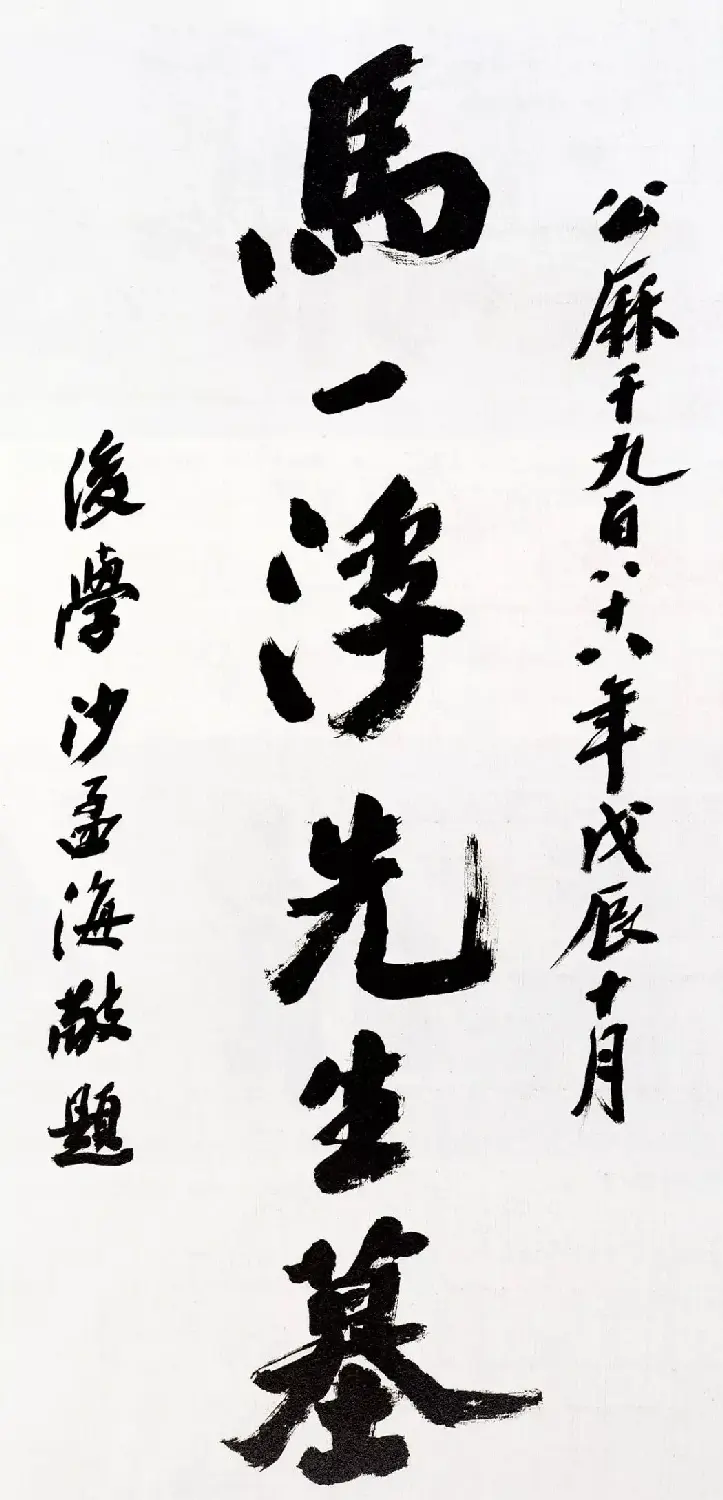 公厤千九百八十八年戊辰十月
馬一浮先生墓
後學沙孟海敬題